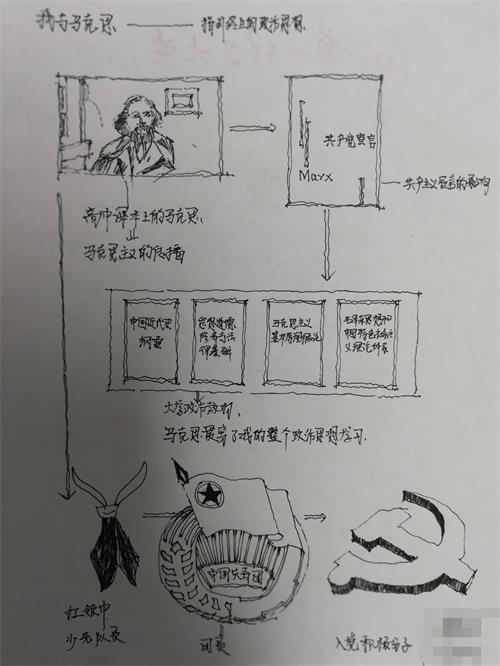 我与马克思——指间丝上的政治思想
共产党宣言
Marx
共产主义宣言的影响
高中课本上的马克思
马克思主义的传播
中国近代史
纲要
思想道德
修养与法
律基础
马克思主义
基本原理概论
毛泽东思想和
中国特色社会主
义理论体系
大学政治教材
马克思贯穿了我的整个政治思想学习.
中国共青团
红领巾
少先队员
团员
入党积极分子